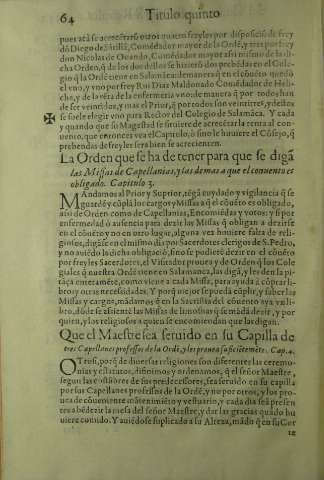 64 Titulo quinto
pues acá se acrecẽtarõ otros quatro freyles por disposiciõ de frey
dõ Diego de Seuilla, Comẽdador mayor de la Ordẽ, y tres por frey
don Nicolas de Ouando, Comẽdador mayor assi mismo de la di-
cha Orden, q̃ de los dos dellos se hizierõ dos prebẽdas en el Cole-
gio q̃ la Ordẽ tiene en Salamãca: de manera q̃ en el cõuẽto quedó
el vno, y vno por frey Rui Diaz Maldonado Comẽdador de Hel-
che, y de la rẽta de la enfermeria vno: de manera q̃ por todos han
de ser veintidos, y mas el Prior, q̃ por todos son veintitres, y destos
se suele elegir vno para Rector del Colegio de Salamãca. Y cada
y quando que su Magestad se siruiere de acrecẽtar la renta al con-
uento, que entonces vea el Capitulo, ò sino le huuiere el Cõsejo, q̃
prebendas de freyles serà bien se acrecienten.
La Orden que se ha de tener para que se digã
las Missas de Capellanias, y las demas a que el conuento es
obligado. Capitulo 3.
MAndamos al Prior y Suprior, tẽgã cuydado y vigilancia q̃ se
guardẽ y cũplã los cargos y Missas a q̃ el cõuẽto es obligado,
assi de Orden como de Capellanias, Encomiẽdas y votos: y si por
enfermedad ò ausencia para dezir las Missas q̃ obligan a dezirse
en el cõuẽto y no en otro lugar, alguna vez huuiere falta de reli-
giosos, digãse en el mismo dia por Sacerdotes clerigos de S. Pedro,
y no auiẽdo la dicha obligaciõ, sino se pudierẽ dezir en el cõuẽto
por freyles Sacerdotes, el Visitador prouea y de Orden q̃ los Cole
giales q̃ nuestra Ordẽ tiene en Salamanca, las digã, y les den la pi-
tãça enteramẽte, como viene a cada Missa, para ayuda a cõprar li-
bros y otras necessidades. Y porq̃ mejor se pueda cũplir, y saber las
Missas y cargos, mãdamos q̃ en la Sacristia del cõuẽto aya vn li-
bro, dõde se assienẽ las Missas de limosna q̃ se mãdã dezir, y por
quien, y los religiosos a quien se encomiendan que las digan.
Que el Maestre sea seruido en su Capilla de
tres Capellanes professos de la Ordẽ, y les prouea suficiẽtemẽte. Cap. 4.
OTrosi, porq̃ de diuersas religiones son diferentes las ceremo-
nias y estatutos, disinimos y ordenamos, q̃ el señor Maestre,
segun las cõstitões de sus predecessores, sea seruido en su capilla
por sus Capellanes professos de la Ordẽ, y no por otros, y los pro-
uea de cõueniente mãtenimiẽto y vestuario, y cada dia seã presen
tes a bẽdezir la mesa del señor Maestre, y dar las gracias quãdo hu
uiere comido. Y auiẽdose suplicado a su Alteza, mãdò q̃ en su Cor
te